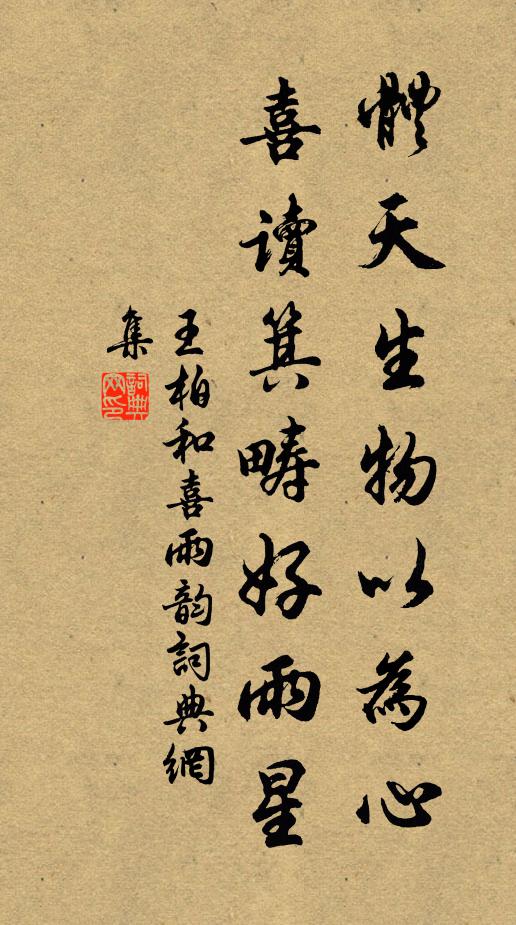 體天生物以為心
喜讀箕疇好雨星
王柏和喜雨韵詞典網
集
詞典網印